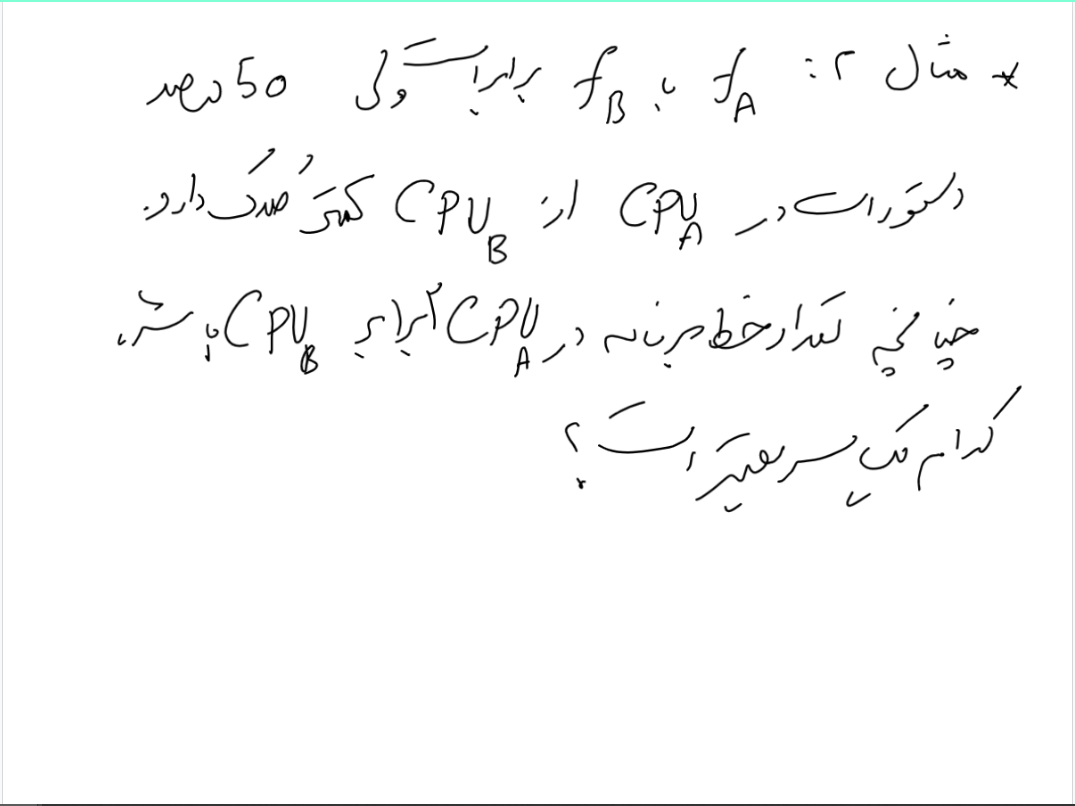 * مثال ۲: fA با fB برابر است ولی 50 درصد
دستورات در CPUA از CPUB کمتر کلاک دارد.
چنانچه تعداد خط برنامه در CPUA برابر CPUB باشد،
کدام یک سریعتر است؟